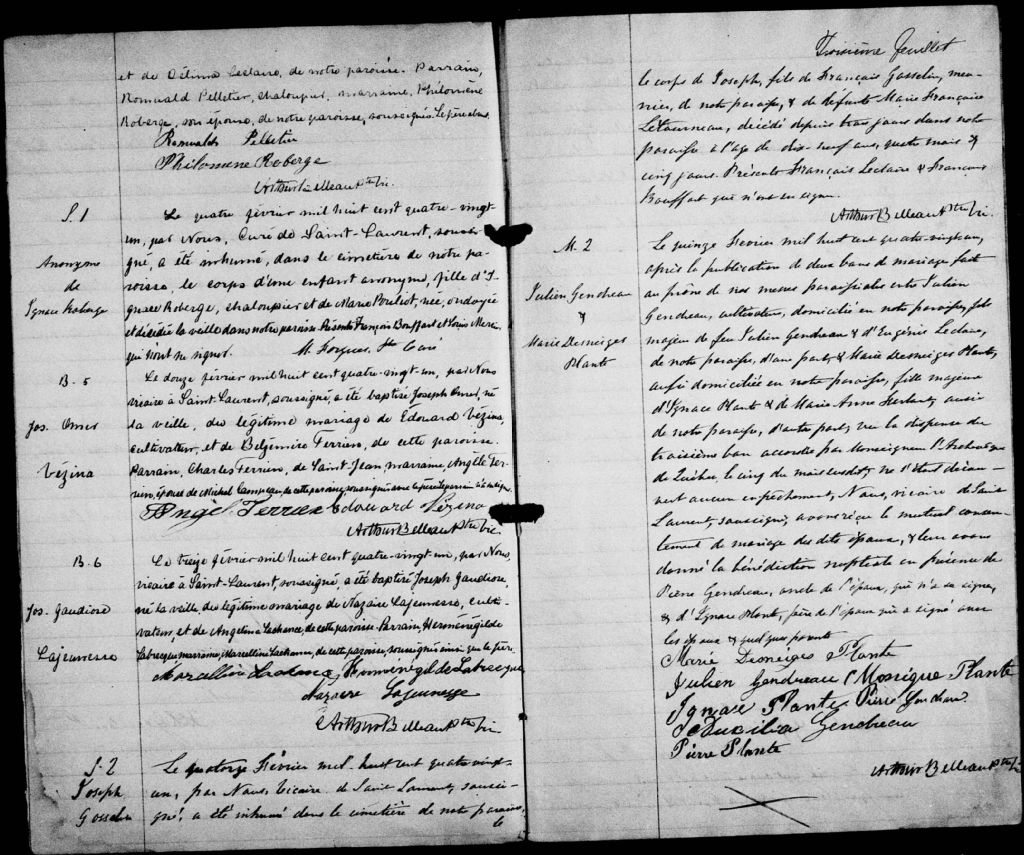 et de Délima Leclaire, de notre paroisse. Parrain,
Romuald Pelletier, chaloupier, marraine, Philomène
Roberge, son épouse, de notre paroisse, soussignés. Le père absent.
Romuald Pelletier
Philomène Roberge
Arthur Belleau Ptre Vic.
S. 1
Anonyme
de
Ignace Roberge
Le quatre février mil huit cent quatre-vingt-
un, par Nous, Curé de Saint-Laurent, soussi-
gné, a été inhumé, dans le cimetière de notre pa-
roisse, le corps d'une enfant anonyme, fille d'I-
gnace Roberge, chaloupier et de Marie Pouliot, née, ondoyée
et décédée la veille dans notre paroisse. Présents François Bouffart et Louis
qui n'ont su signer. Ptre Curé
B. 5
Jos. Omer
Vézina
Le douze février mil huit cent quatre-vingt-un, par Nous
vicaire à Saint-Laurent, soussigné, a été baptisé Joseph Omer, né
la veille, du légitime mariage de Edouard Vézina,
cultivateur, et de Belzémire Terrien, de cette paroisse.
Parrain, Charles Terrien, de Saint Jean, marraine, Angèle Ter-
rien, épouse de Michel de cette paroisse, soussignés avec le père
Angèl Terrien Edouard Vézina
Arthur Belleau Ptre Vic.
B. 6
Jos. Gaudiose
Lajeunesse
Le treize février mil huit cent quatre-vingt-un, par Nous,
vicaire à Saint-Laurent, soussigné, a été baptisé Joseph Gaudiose,
né la veille, du légitime mariage de Nazaire Lajeunesse, culti-
vateur, et de Angelina Lachance, de cette paroisse. Parrain, Herménégilde
Labrecque, marraine, Marcelline Lachance, de cette paroisse, soussignés ainsi que le père.
Marcelline Lachance Herménégilde Labrecque
Nazaire Lajeunesse
Arthur Belleau Ptre Vic
S. 2
Joseph
Gosselin
Le quatorze Février mil huit cent quatre vingt
un, par Nous, Vicaire de Saint Laurent, soussi-
gné, a été inhumé dans le cimetière de notre paroisse,
le
Troisième feuillet
le corps de Joseph, fils de François Gosselin, meu-
nier, de notre paroisse, & de défunte Marie Françoise
Létourneau, décédé depuis trois jours dans notre
paroisse à l'âge de dix-neuf ans, quatre mois &
cinq jours. Présents François Leclaire & François
Bouffart qui n'ont su signer.
Arthur Belleau Ptre Vic.
M. 2
Julien Gendreau
&
Marie Desneiges
Plante
Le quinze Février mil huit cent quatre-vingt-un,
après la publication de deux bans de mariage, fait
au prône de nos messes paroissiales entre Julien
Gendreau, cultivateur, domicilié en notre paroisse, fils
majeur de feu Julien Gendreau & d'Eugénie Leclaire,
de notre paroisse, d'une part; & Marie Desneiges Plante,
aussi domiciliée en notre paroisse, fille majeure
d'Ignace Plante & de Marie Anne aussi
de notre paroisse, d'autre part; vu la dispense du
troisième ban accordée par Monseigneur l'Archevêque
de Québec le cinq du mois susdit; ne s'étant découvert
aucun empêchement, Nous, vicaire de Saint
Laurent, soussigné, avons reçu le mutuel consen-
tement de mariage des dits époux, & leur avons
donné la bénédiction nuptiale en présence de
Pierre Gendreau, oncle de l'époux, qui n'a su signer,
& d'Ignace Plante, père de l'épouse qui a signé avec
les époux & quelques parents
Marie Desneiges Plante
Julien Gendreau Monique Plante
Ignace Plante Pierre Gendreau
Gendreau
Pierre Plante
Arthur Belleau Ptre Vic